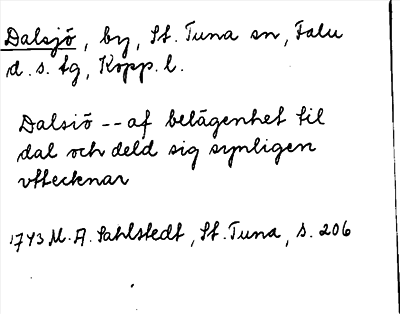 Dalsjö, by, St. Tuna sn, Falu
d.s. tg, Kopp. l.
Dalsiö -- af belägenhet til
dal och deld sig synligen
vttecknar
1743 M. A. Sahlstedt, St. Tuna, s. 206